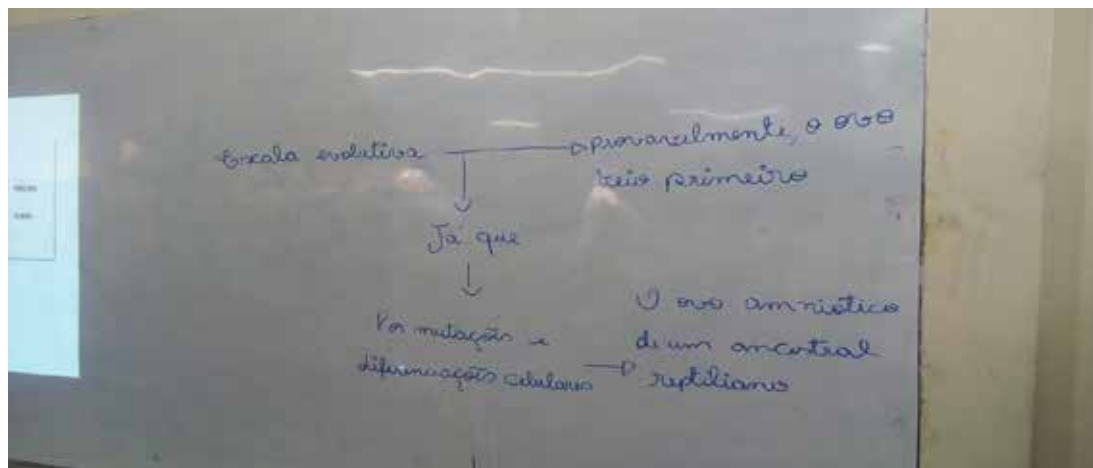 Escala evolutiva
provavelmente, o ovo
veio primeiro
Já que
Por mutações e
diferenciações celulares
O ovo amniótico
de um ancestral
reptiliano